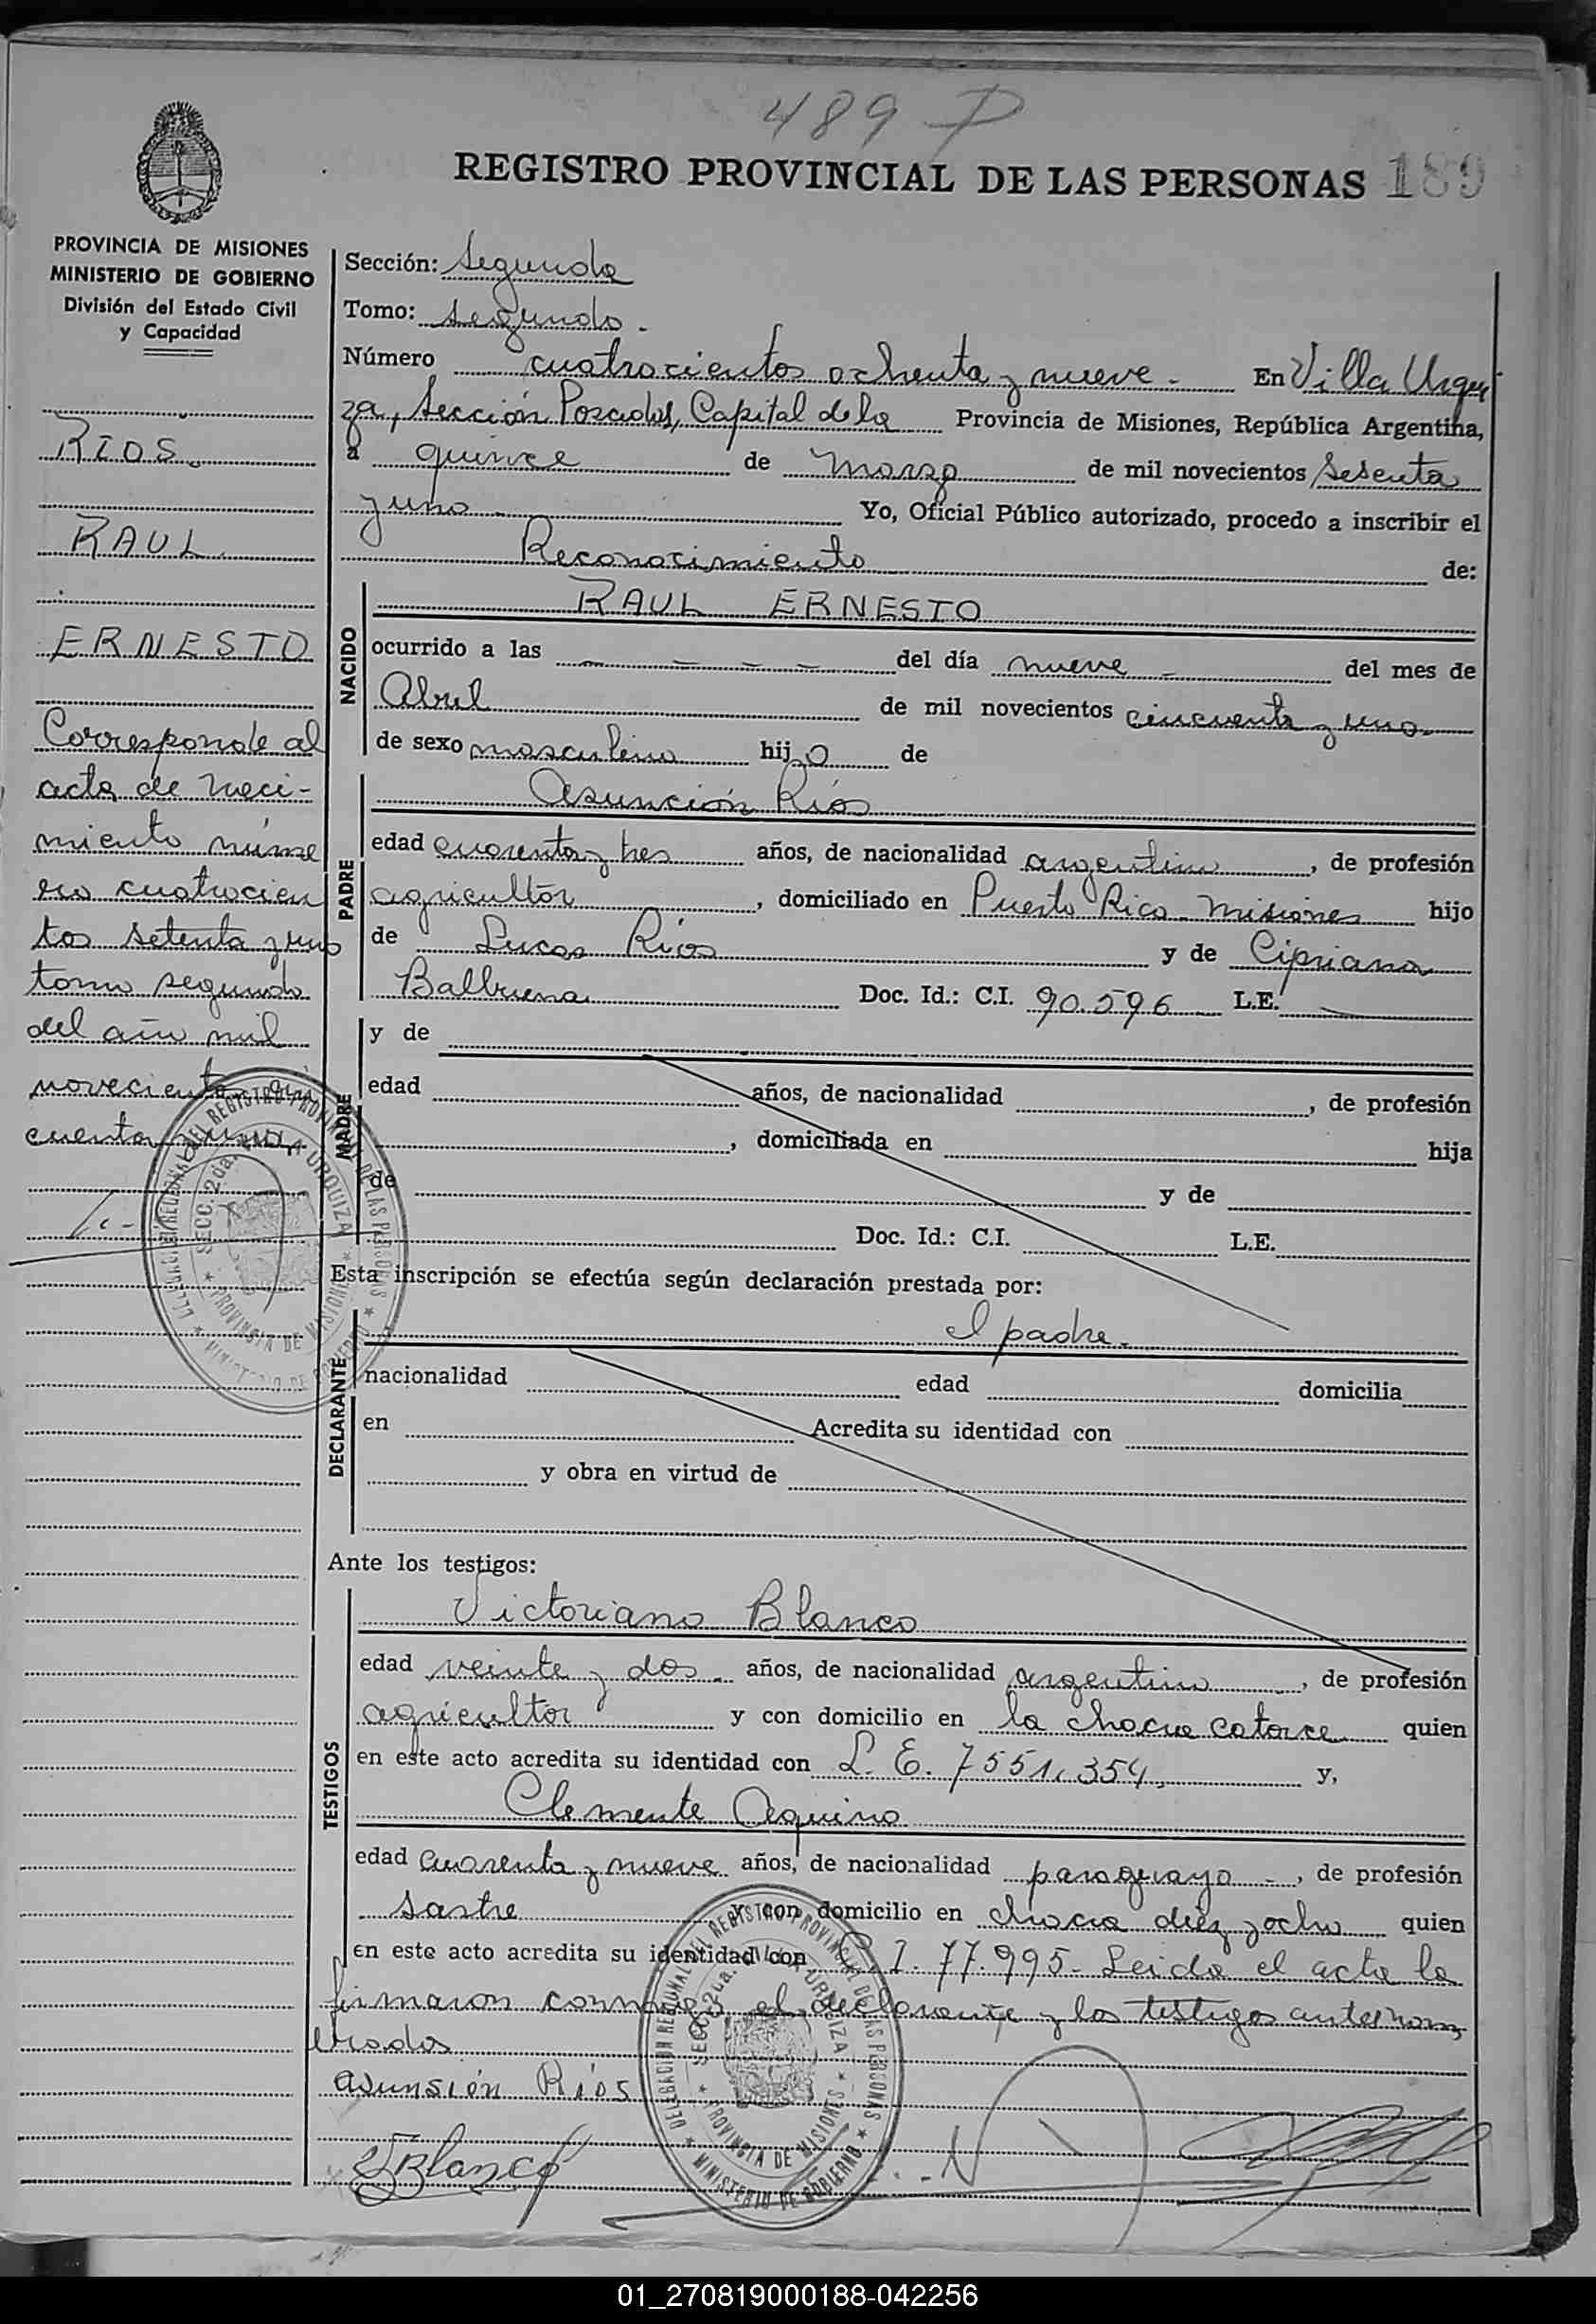 489 P
REGISTRO PROVINCIAL DE LAS PERSONAS 189
PROVINCIA DE MISIONES
MINISTERIO DE GOBIERNO
División del Estado Civil
y Capacidad
RIOS.
RAUL
ERNESTO
Corresponde al
acta de naci-
miento núme
ro cuatrocien
tos setenta y uno
tomo segundo
del año mil
novecientos cin
cuenta y uno
Sección: Segunda
Tomo: segundo.
Número cuatrocientos ochenta y nueve. En Villa Urqui
za, Sección Posadas, Capital de la Provincia de Misiones, República Argentina,
a quince de marzo de mil novecientos sesenta
y uno Yo, Oficial Público autorizado, procedo a inscribir el
Reconocimiento de:
NACIDO
RAUL ERNESTO
ocurrido a las - - - - del día nueve - del mes de
Abril de mil novecientos cincuenta y uno.
de sexo masculino hijo de
PADRE
Asunción Ríos
edad cuarenta y tres años, de nacionalidad argentino, de profesión
agricultor, domiciliado en Puerto Rico - misiones hijo
de Lucas Ríos y de Cipriana
Balbuena Doc. Id.: C.I. 90.596 L.E.
MADRE
y de
edad años, de nacionalidad , de profesión
, domiciliada en hija
de y de
Doc. Id.: C.I. L.E.
Esta inscripción se efectúa según declaración prestada por:
DECLARANTE
el padre.
nacionalidad edad domicilia
en Acredita su identidad con
y obra en virtud de
Ante los testigos:
TESTIGOS
Victoriano Blanco
edad veinte y dos años, de nacionalidad argentino, de profesión
agricultor y con domicilio en la chacra catorce quien
en este acto acredita su identidad con L. E. 7551.354, y,
Clemente Aquino
edad cuarenta y nueve años, de nacionalidad paraguayo -, de profesión
sastre y con domicilio en chacra diez y ocho quien
en este acto acredita su identidad con C.I. 77.995- Leida el acta la
firmaron conmigo el declarante y los testigos antes nom
brados
asunsión Ríos
VBlanco
DELEGACION REGIONAL DEL REGISTRO PROVINCIAL DE LAS PERSONAS
SECC. 2da. VILLA URQUIZA
PROVINCIA DE MISIONES
MINISTERIO DE GOBIERNO
01_270819000188-042256